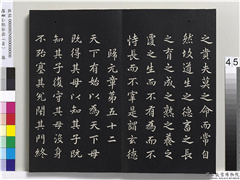 之貴夫莫之命而常自
然故道生之德畜之長
之育之成之熟之養之
覆之生而不有為而不
恃長而不宰是謂玄德
歸元章第五十二
天下有始以為天下母
既得其母以知其子既
知其子復守其母沒身
不殆塞其兌閉其門終
4.5